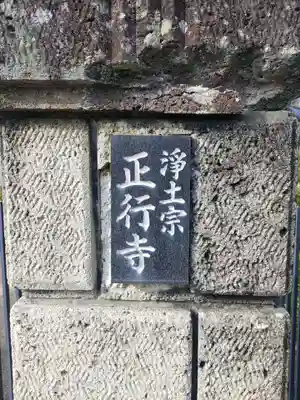 淨土宗
正行寺